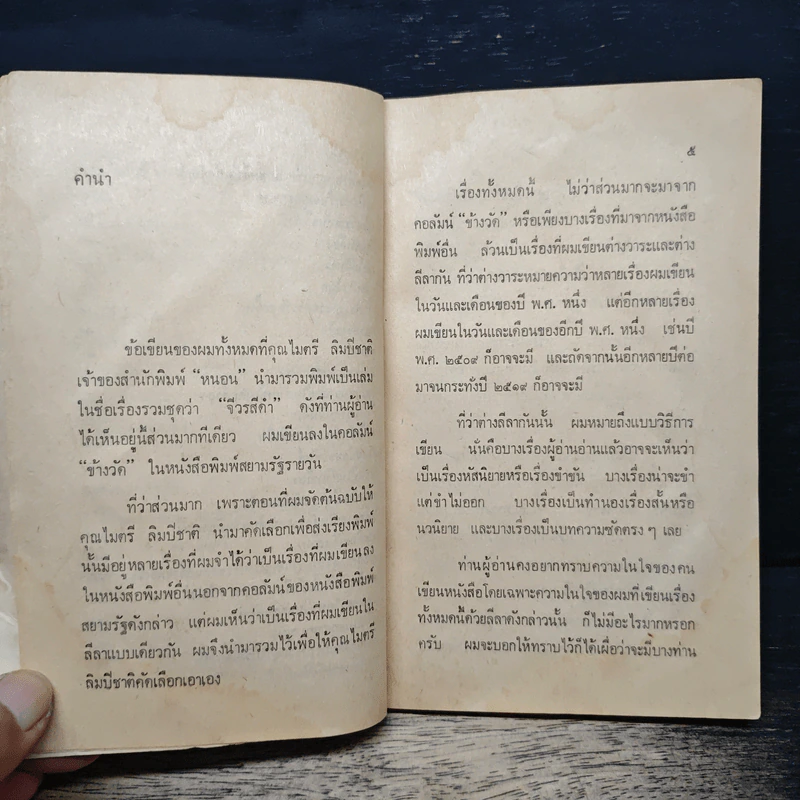 คำนำ
ข้อเขียนของผมทั้งหมดที่คุณไมตรี ลิมปิชาติ
เจ้าของสำนักพิมพ์ “หนอน” นำมารวมพิมพ์เป็นเล่ม
ในชื่อเรื่องรวมชุดว่า “จีวรสีดำ” ดังที่ท่านผู้อ่าน
ได้เห็นอยู่นี้ส่วนมากทีเดียว ผมเขียนลงในคอลัมน์
“ข้างวัด” ในหนังสือพิมพ์สยามรัฐรายวัน
ที่ว่าส่วนมาก เพราะตอนที่ผมจัดต้นฉบับให้
คุณไมตรี ลิมปิชาติ นำมาคัดเลือกเพื่อส่งเรียงพิมพ์
นั้นมีอยู่หลายเรื่องที่ผมจำได้ว่าเป็นเรื่องที่ผมเขียนลง
ในหนังสือพิมพ์อื่นนอกจากคอลัมน์ของหนังสือพิมพ์
สยามรัฐดังกล่าว แต่ผมเห็นว่าเป็นเรื่องที่ผมเขียนใน
ลีลาแบบเดียวกัน ผมจึงนำมารวมไว้เพื่อให้คุณไมตรี
ลิมปิชาติคัดเลือกเอาเอง
๕
เรื่องทั้งหมดนี้ ไม่ว่าส่วนมากจะมาจาก
คอลัมน์ “ข้างวัด” หรือเพียงบางเรื่องที่มาจากหนังสือ
พิมพ์อื่น ล้วนเป็นเรื่องที่ผมเขียนต่างวาระและต่าง
ลีลากัน ที่ว่าต่างวาระหมายความว่าหลายเรื่องผมเขียน
ในวันและเดือนของปี พ.ศ. หนึ่ง แต่อีกหลายเรื่อง
ผมเขียนในวันและเดือนของอีกปี พ.ศ. หนึ่ง เช่นปี
พ.ศ. ๒๕๐๙ ก็อาจจะมี และถัดจากนั้นอีกหลายปีต่อ
มาจนกระทั่งปี ๒๕๑๙ ก็อาจจะมี
ที่ว่าต่างลีลากันนั้น ผมหมายถึงแบบวิธีการ
เขียน นั่นคือบางเรื่องผู้อ่านอ่านแล้วอาจจะเห็นว่า
เป็นเรื่องหัสนิยายหรือเรื่องขำขัน บางเรื่องน่าจะขำ
แต่ขำไม่ออก บางเรื่องเป็นทำนองเรื่องสั้นหรือ
นวนิยาย และบางเรื่องเป็นบทความซัดตรง ๆ เลย
ท่านผู้อ่านคงอยากทราบความในใจของคน
เขียนหนังสือโดยเฉพาะความในใจของผมที่เขียนเรื่อง
ทั้งหมดนี้ด้วยลีลาดังกล่าวนั้น ก็ไม่มีอะไรมากหรอก
ครับ ผมจะบอกให้ทราบไว้ก็ได้เผื่อว่าจะมีบางท่าน